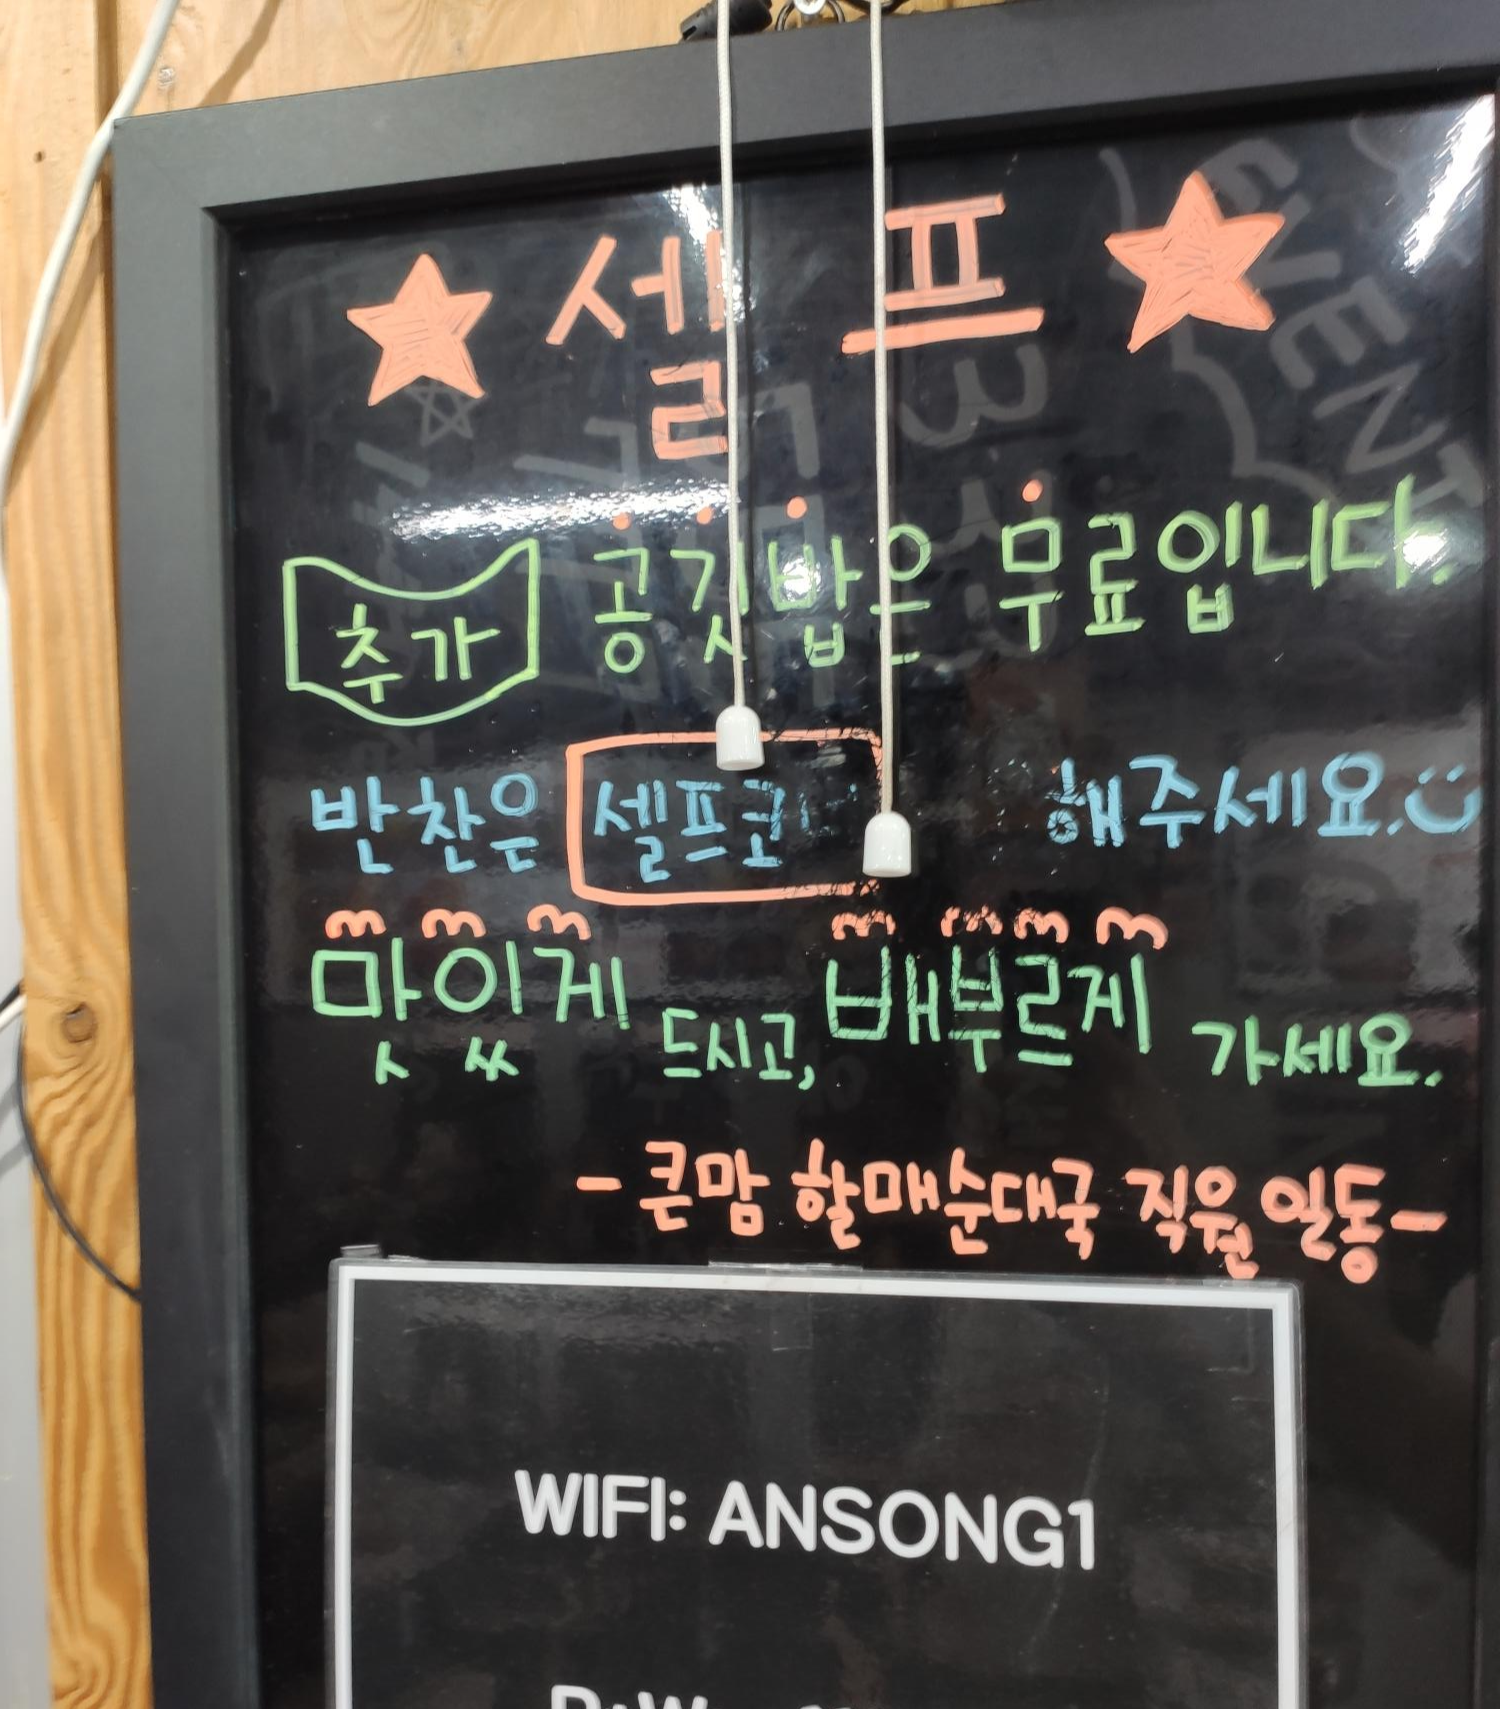 ★ 셀프 ★
추가 공깃밥은 무료입니다.
반찬은 셀프코 해주세요.
맛있게 드시고, 배부르게 가세요.
- 큰맘 할매순대국 직원 일동 -
WIFI: ANSONG1